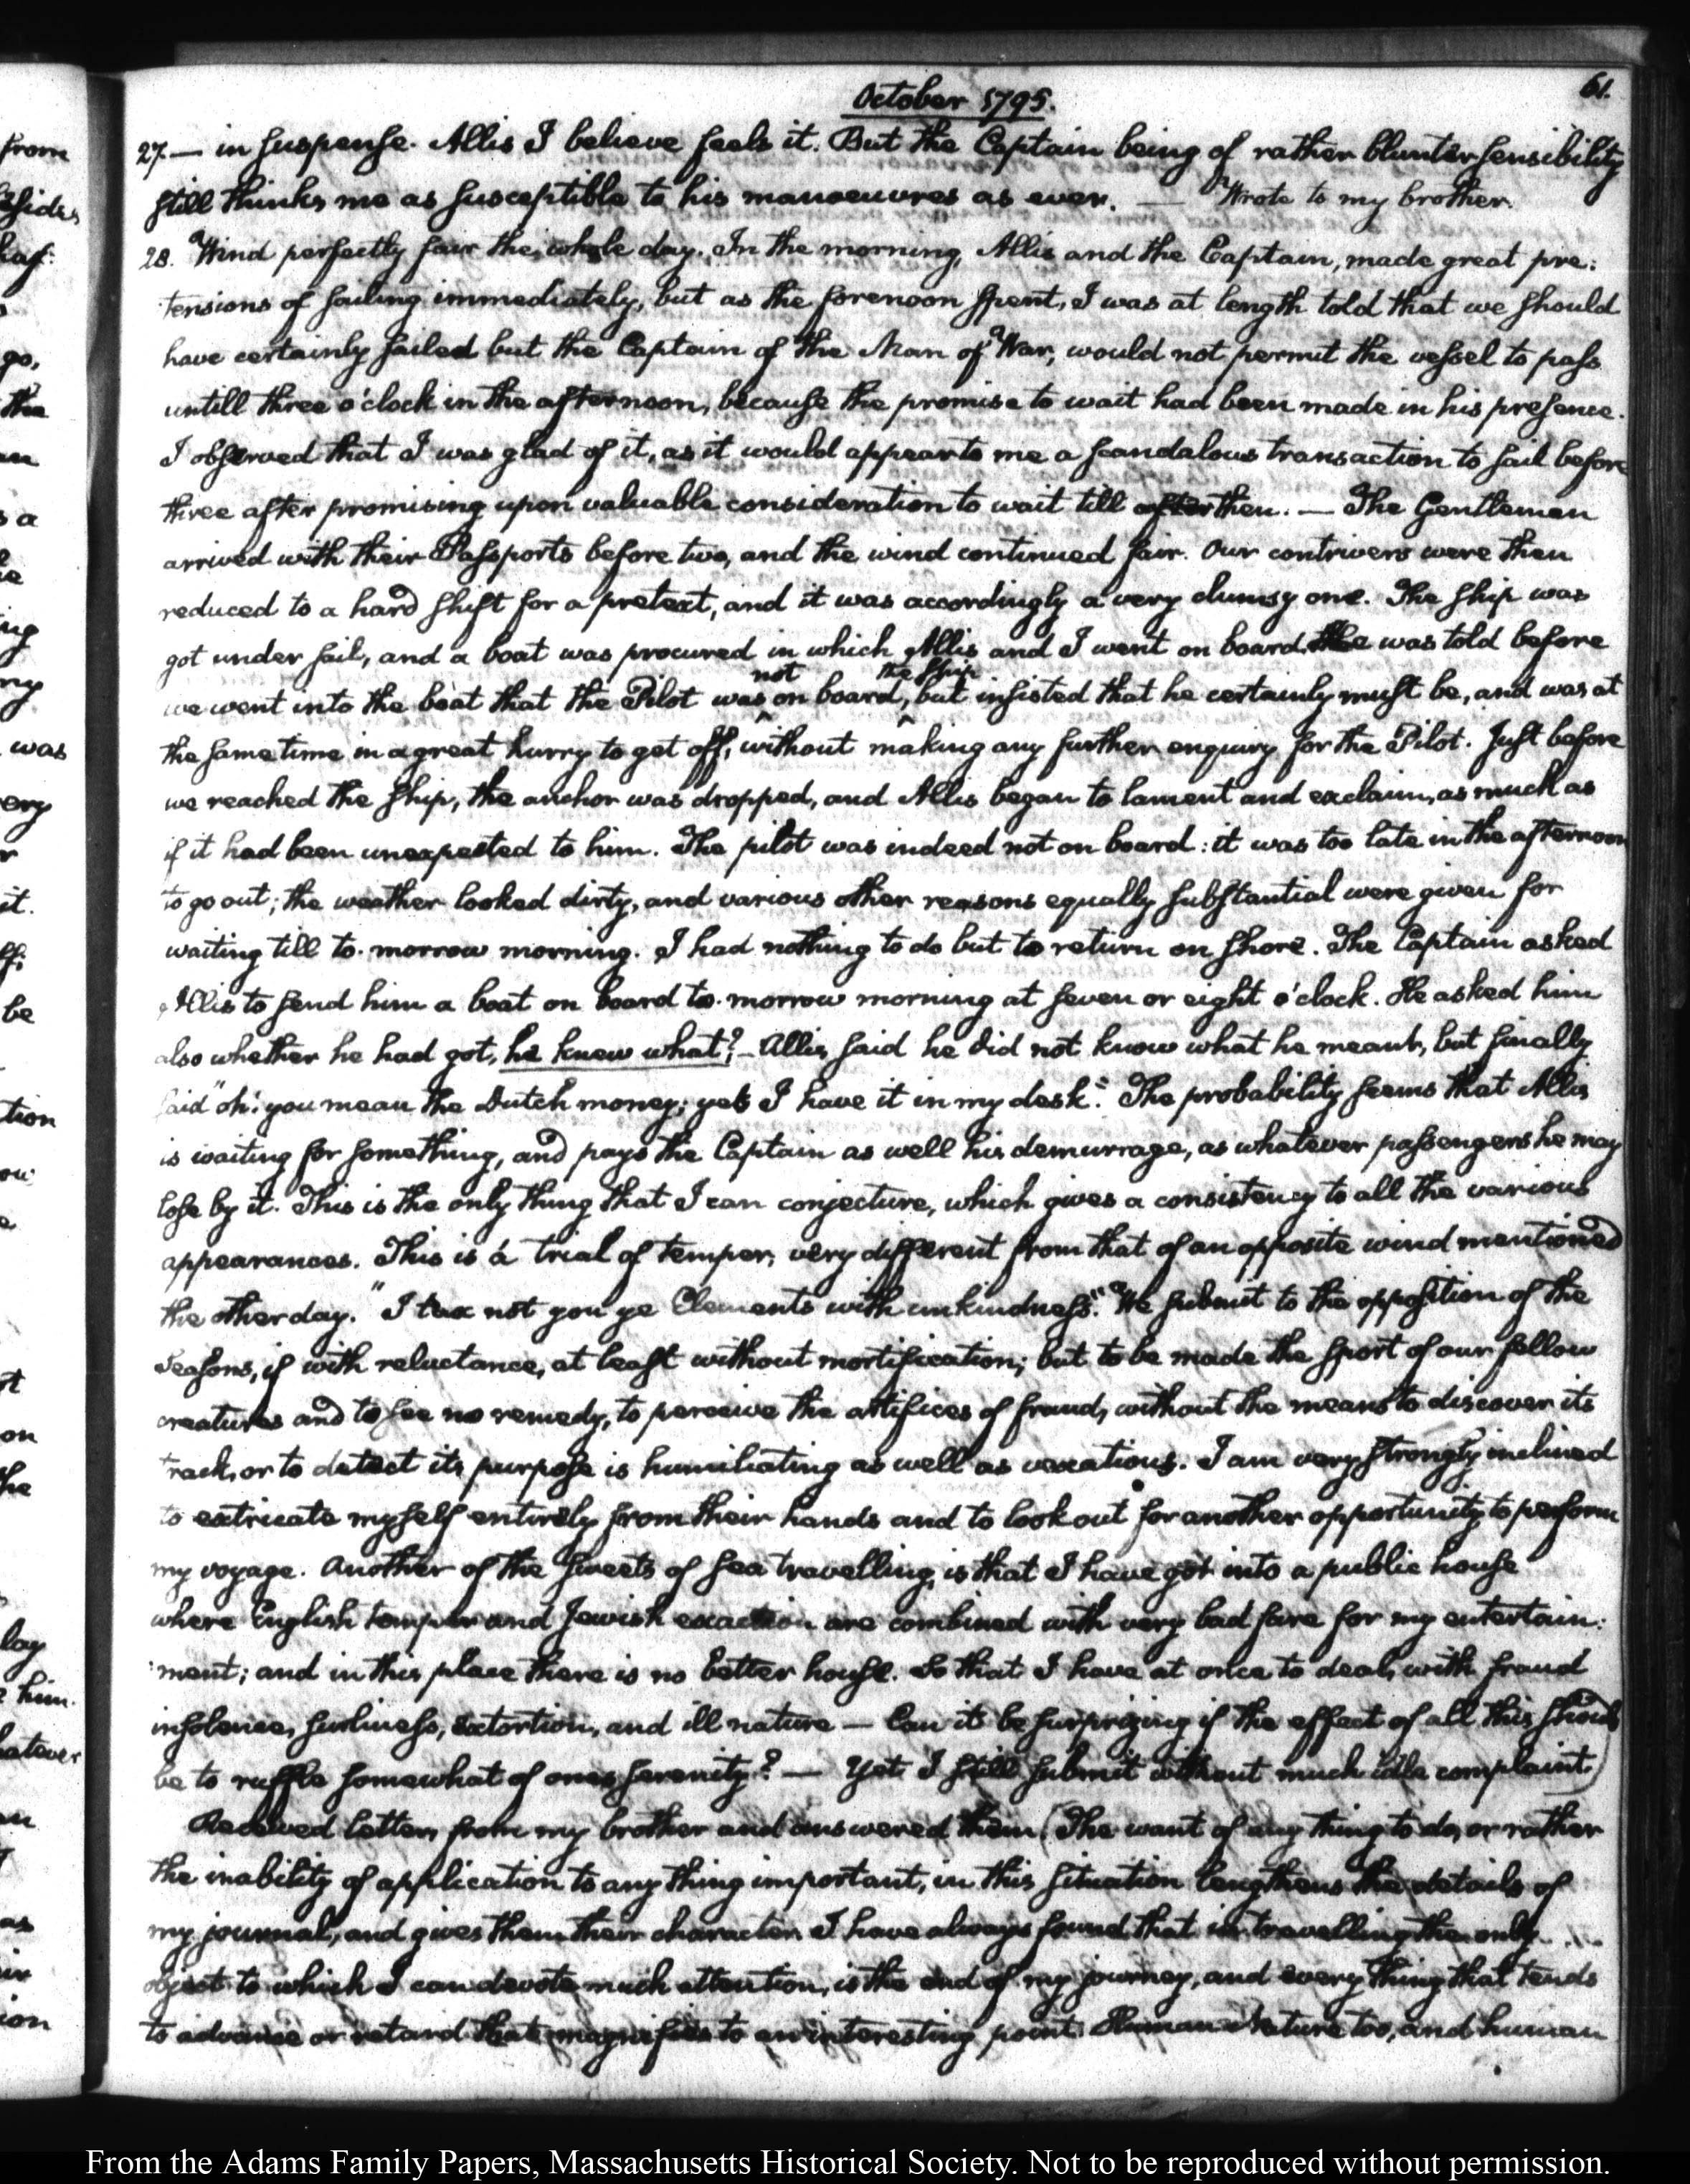 October 1795.
61.
27. — in suspense. Allis I believe feels it. But the Captain being of rather blunter sensibility
still thinks me as susceptible to his manoeuvres as ever. — Wrote to my brother.
28. Wind perfectly fair the whole day. In the morning, Allis and the Captain, made great pre:
tensions of sailing immediately, but as the forenoon spent, I was at length told that we should
have certainly sailed but the Captain of the Man of War, would not permit the vessel to pass
untill three o'clock in the afternoon, because the promise to wait had been made in his presence.
I observed that I was glad of it, as it would appear to me a scandalous transaction to sail before
three after promising upon valuable consideration to wait till after then. — The Gentlemen
arrived with their Passports before two, and the wind continued fair. Our contrivers were then
reduced to a hard shift for a pretext, and it was accordingly a very clumsy one. The ship was
got under sail, and a boat was procured in which Allis and I went on board. He was told before
not the ship
we went into the boat that the Pilot was on board, but insisted that he certainly must be, and was at
the same time in a great hurry to get off, without making any further enquiry for the Pilot. Just before
we reached the ship, the anchor was dropped, and Allis began to lament and exclaim, as much as
if it had been unexpected to him. The pilot was indeed not on board: it was too late in the afternoon
to go out; the weather looked dirty, and various other reasons equally substantial were given for
waiting till to-morrow morning. I had nothing to do but to return on shore. The Captain asked
Allis to send him a boat on board to-morrow morning at seven or eight o'clock. He asked him
also whether he had got, he knew what? — Allis said he did not know what he meant, but finally
said "oh! you mean the Dutch money; yes I have it in my desk." The probability seems that Allis
is waiting for something, and pays the Captain as well his demurrage, as whatever passengers he may
lose by it. This is the only thing that I can conjecture, which gives a consistency to all the various
appearances. This is a trial of temper, very different from that of an opposite wind mentioned
the other day. "I tax not you ye Elements with unkindness." We submit to the opposition of the
Seasons, if with reluctance, at least without mortification; but to be made the sport of our fellow
creatures and to see no remedy, to perceive the artifices of fraud, without the means to discover its
track, or to detect its purpose is humiliating as well as vexatious. I am very strongly inclined
to extricate myself entirely from their hands and to look out for another opportunity to perform
my voyage. Another of the sweets of sea travelling, is that I have got into a public house
where English temper and Jewish exaction are combined with very bad fare for my entertain:
ment; and in this place there is no better house. So that I have at once to deal, with fraud
insolence, surliness, extortion, and ill nature — Can it be surprizing if the effect of all this should
be to ruffle somewhat of ones serenity? — Yet I still submit without much idle complaint.
Received letters from my brother and answered them. (The want of any thing to do, or rather
the inability of application to any thing important, in this situation lengthens the details of
my journal, and gives them their character. I have always found that in travelling the only
object to which I can devote much attention, is the end of my journey, and every thing that tends
to advance or retard that magnifies to an interesting point. Human Nature too, and human
from
go,
the
an
s a
ing
was
ery
it.
be
tion
on
the
lay
him.
as
ion
From the Adams Family Papers, Massachusetts Historical Society. Not to be reproduced without permission.